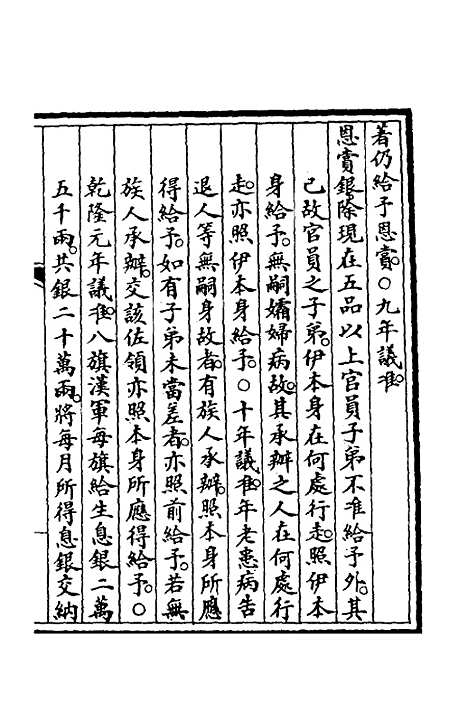 著仍給予恩賞。○九年議准。
恩賞銀除現在五品以上官員子弟不准給予外。其
已故官員之子弟。伊本身在何處行走。照伊本
身給予。無嗣孀婦病故。其承辦之人在何處行
走。亦照伊本身給予。○十年議准。年老患病告
退人等無嗣身故者。有族人承辦。照本身所應
得給予。如有子弟未當差者。亦照前給予。若無
族人承辦。交該佐領亦照本身所應得給予。○
乾隆元年議准。八旗漢軍每旗給生息銀二萬
五千兩。共銀二十萬兩。將每月所得息銀交納